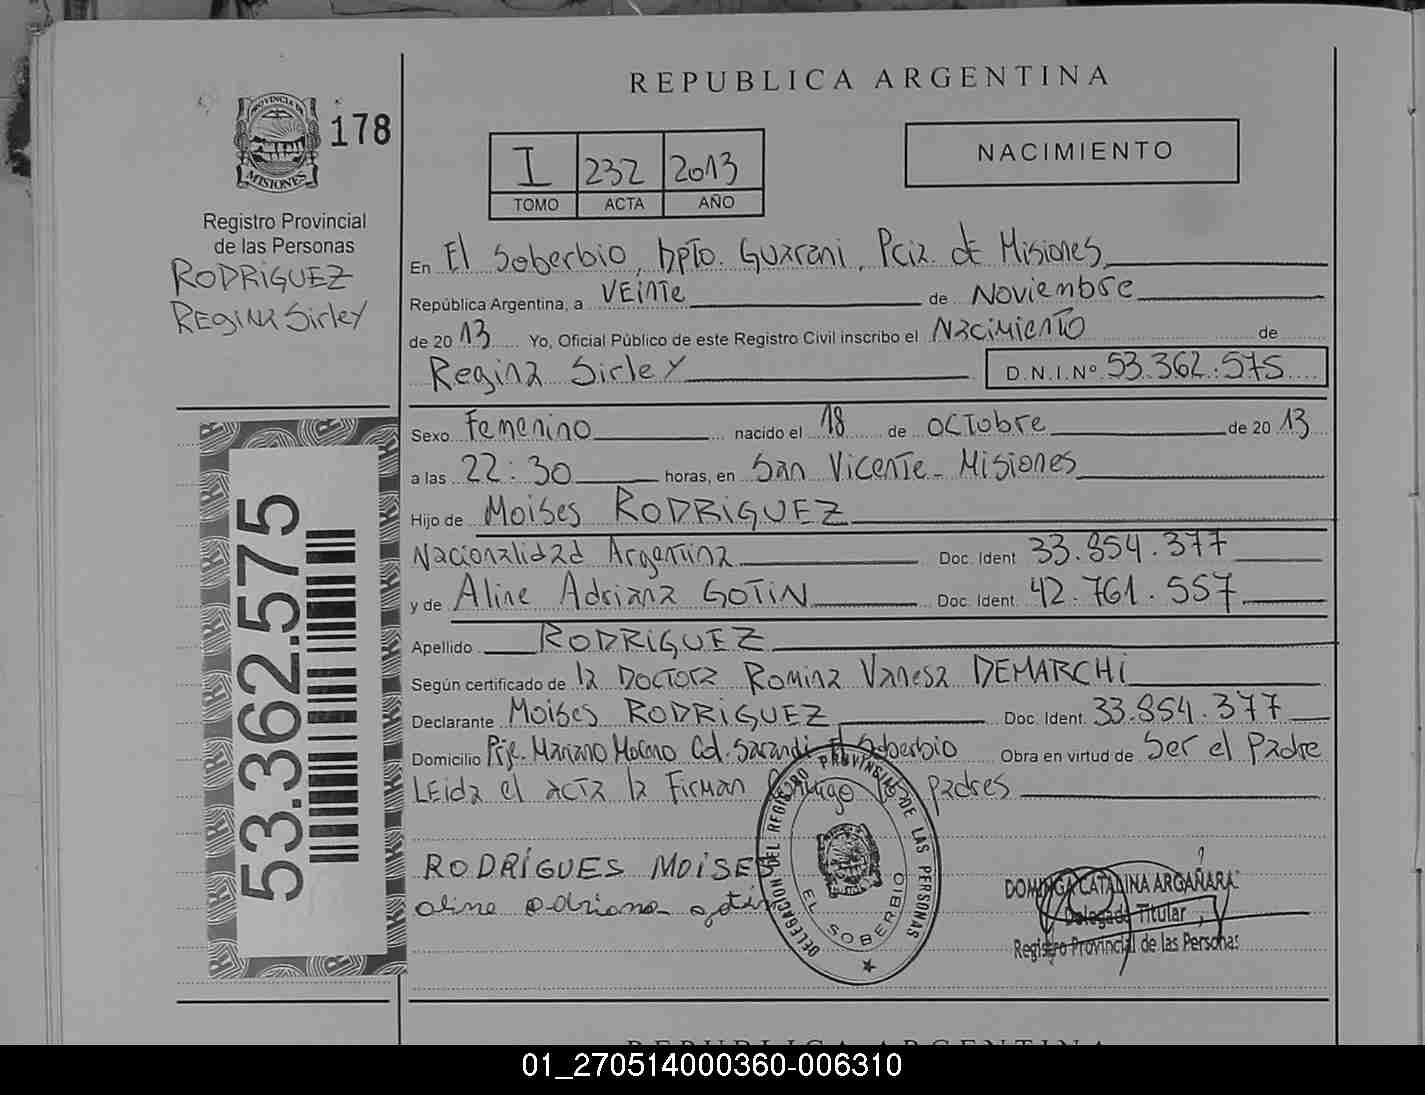 REPUBLICA ARGENTINA
PROVINCIA DE
MISIONES
178
Registro Provincial
de las Personas
RODRIGUEZ
REgina Sirley
I 232 2013
TOMO ACTA AÑO
NACIMIENTO
En El Soberbio, Dpto. Guarani, Pcia. de Misiones
República Argentina, a VEinte de Noviembre
de 20 13 Yo, Oficial Público de este Registro Civil inscribo el Nacimiento de
Regina Sirley D.N.I.Nº 53.362.575
Sexo Femenino nacido el 18 de octobre de 20 13
a las 22:30 horas, en San Vicente - Misiones
Hijo de Moises RODRIGUEZ
Nacionalidad Argentina Doc. Ident. 33.854.377
y de Aline Adriana GOTIN Doc. Ident. 42.761.557
Apellido RODRIGUEZ
Según certificado de la Doctora Romina Vanesa DEMARCHI
Declarante Moises RODRIGUEZ Doc. Ident. 33.854.377
Domicilio Pje. Mariano Moreno Col. Sarandi El Soberbio Obra en virtud de Ser el Padre
LEida el acta la Firman Conmigo los padres
53.362.575
RODRÍGUES MOISES
aline adriana gotin
DELEGACION DEL REGISTRO PROVINCIAL DE LAS PERSONAS
EL SOBERBIO
DOMINGA CATALINA ARGAÑARA
Delegada Titular
Registro Provincial de las Personas
REPUBLICA ARGENTINA
01_270514000360-006310